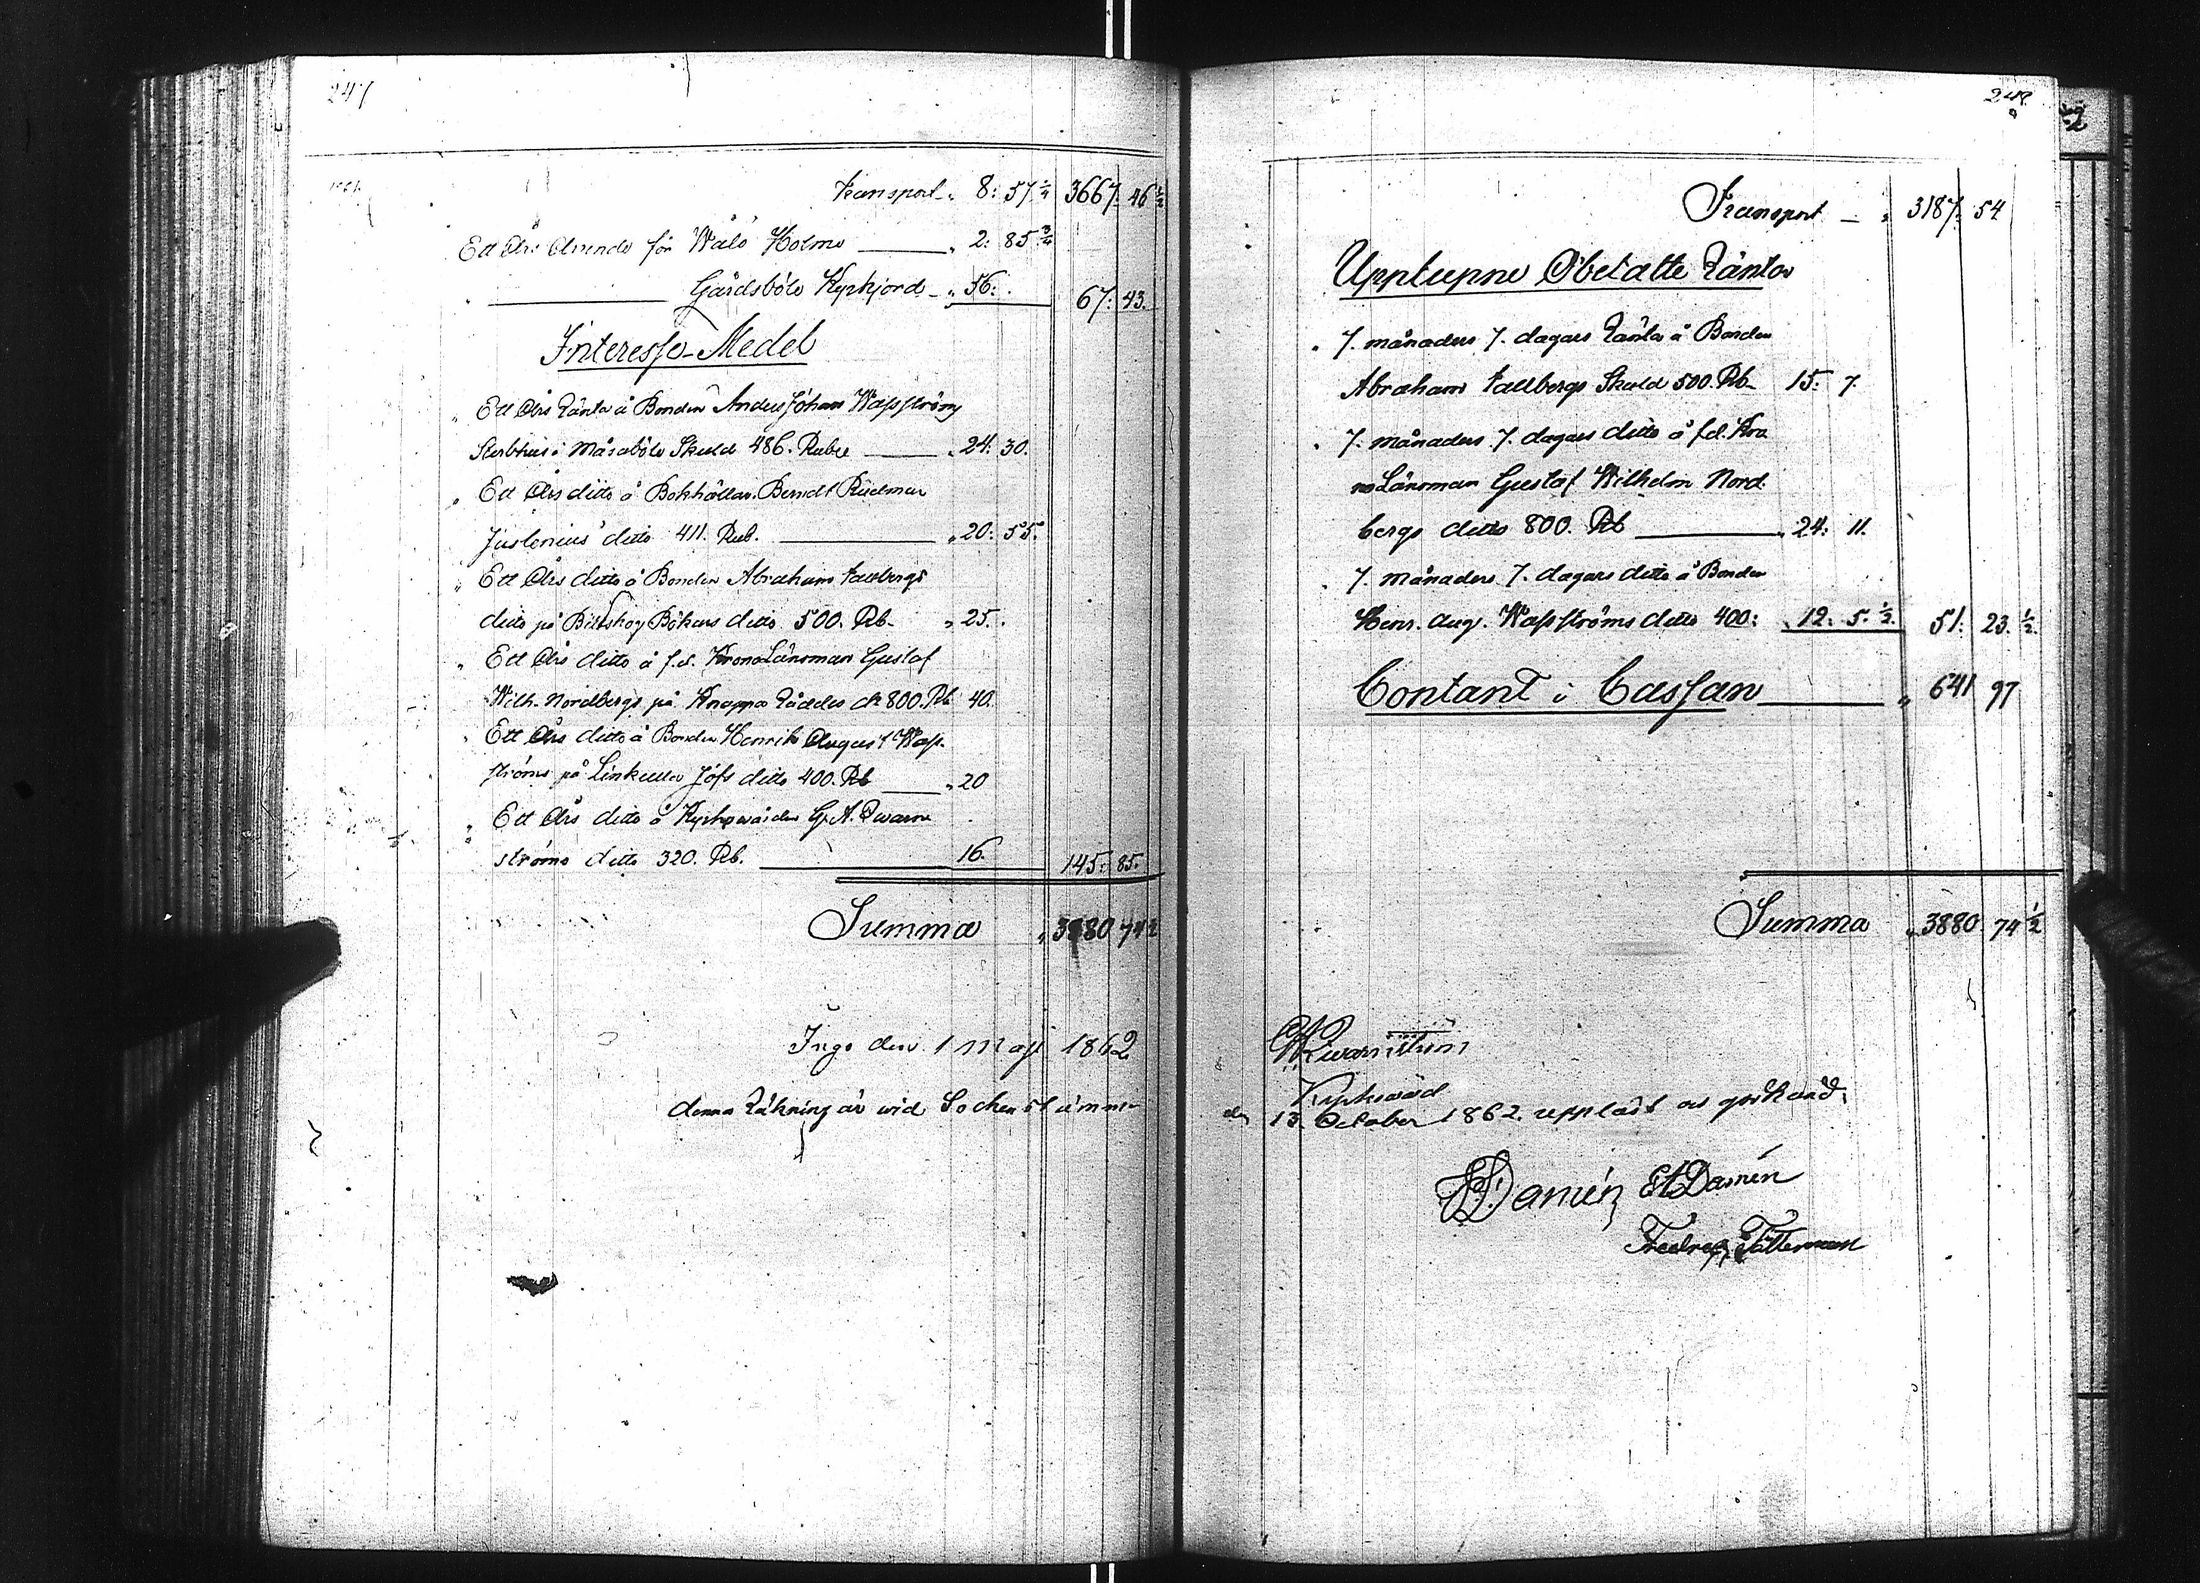 247
Transport „ 8: 57 1/4 3667: 46 1/2
Ett Års Arrende för Wålö Holme — „ 2: 85 3/4
„ — Gårdsböle Kyrkjord — „ 56: . 67: 43.
Interesse-Medel
„ Ett Års Ränta å Bonden Anders Johan Wasströms
Sterbhus i Måsaböle Skuld 486. Rubel — „ 24: 30.
„ Ett Års ditto å Bokhållar. Berndt Rudmar
Juslenius' ditto 411. Rub. — „ 20: 55.
„ Ett Års ditto å Bonden Abraham Fallbergs
ditto på Biskog Bökars ditto 500. Rb. „ 25. .
„ Ett Års ditto å f.d. Krono Länsman Gustaf
Wilh. Nordbergs på Knappa Rådder ck 800. Rb 40.
„ Ett Års ditto å Bonden Henrik August Wass-
ströms på Linkulla Jofs ditto 400. Rb — „ 20
„ Ett Års ditto å Kyrkowärden G. A. Qwarn
ströms ditto 320. Rb. — 16. 145: 85.
Summa „ 3880 74 1/2
Ingo den 1 Maji 1862
denna Räkning är wid Sockenstämma
248
Transport — „ 3187: 54
Upplupne Obetalte Räntor
„ 7. månaders 7. dagars Ränta å Bonden
Abraham Fallbergs Skuld 500. Rb. 15: 7.
„ 7. månaders 7. dagars ditto å f.d. Kro
no Länsman Gustaf Wilhelm Nord
bergs ditto 800. Rb — „ 24: 11.
„ 7. månaders 7. dagars ditto å Bonden
Henr. Aug. Wasströms ditto 400: „ 12: 5. 1/2. 51: 23. 1/2.
Contant i Cassan — „ 641 97
Summa „ 3880 74 1/2
Qwarnström
Kyrkowärd
den 13 October 1862 uppläst och godkänd.
Damén Damén
Fredric Fätterman